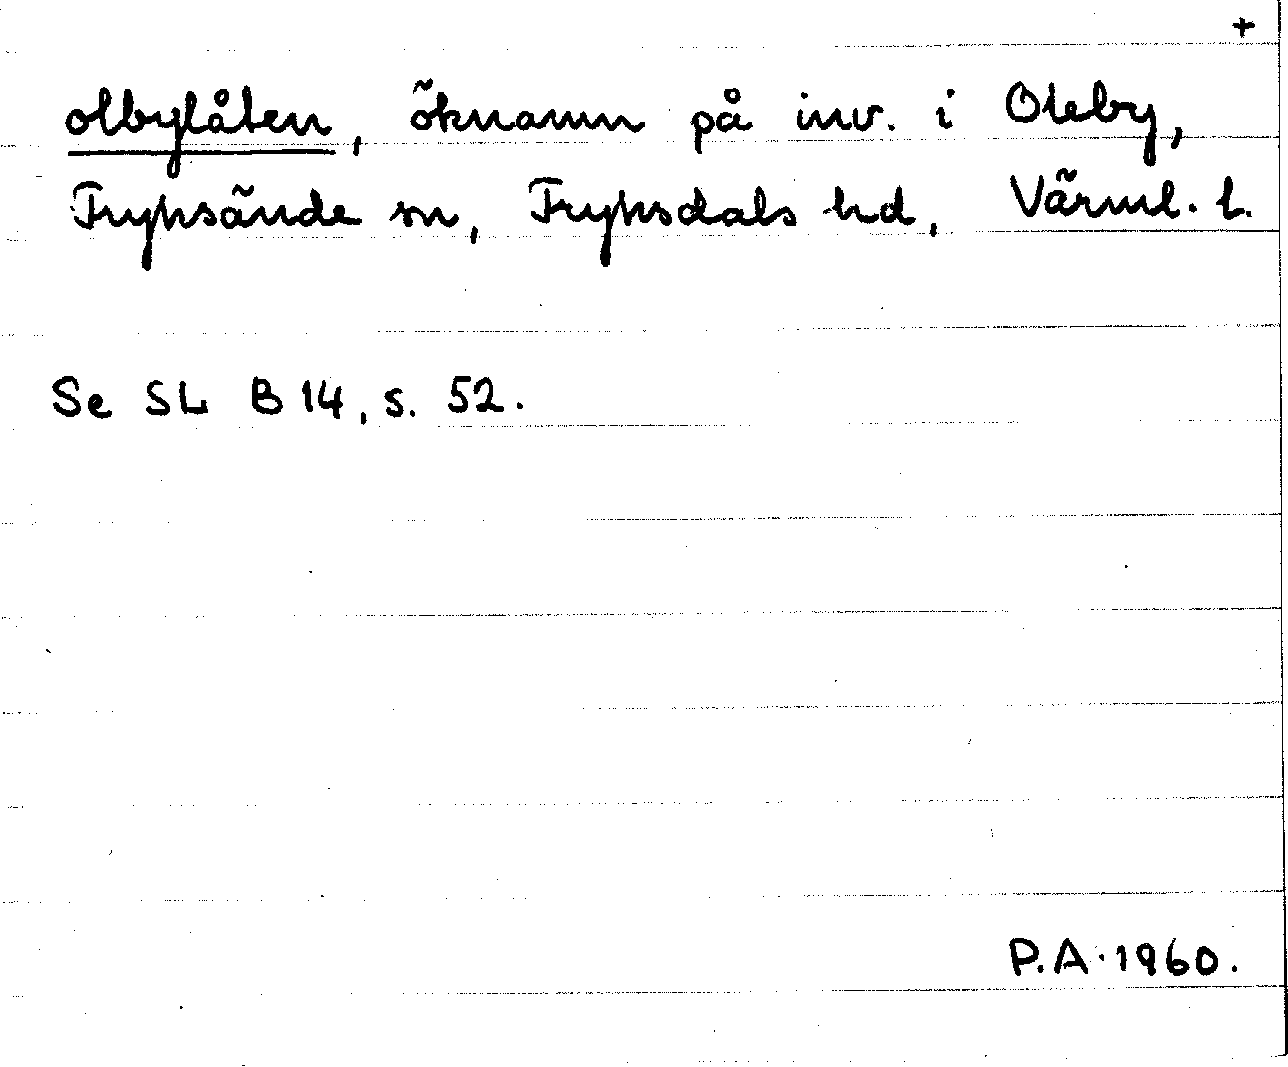 +
olbylåten, öknamn på inv. i Oleby,
Fryksände sn, Fryksdals hd, Värml. l.
Se SL B 14, s. 52.
P.A. 1960.